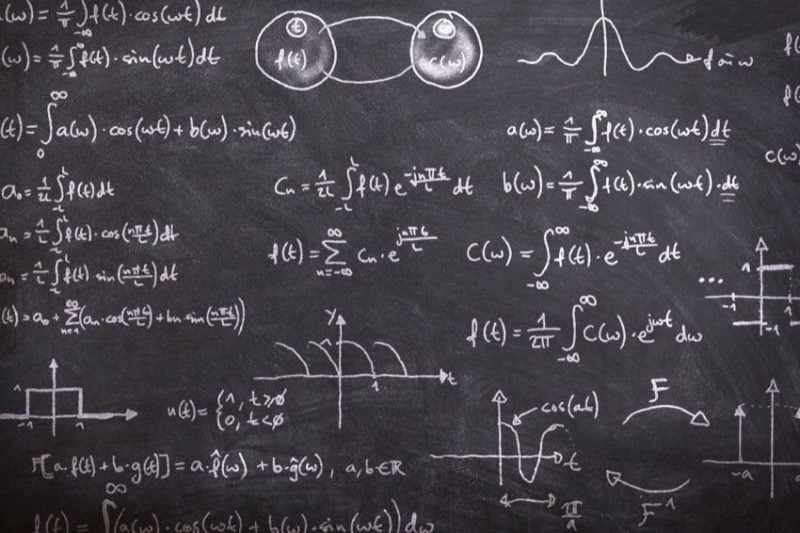 (ω) = 1/π ∫ f(t)·cos(ωt) dt
(ω) = 1/π ∫_-∞^∞ f(t)·sin(ωt) dt
t
f(t)
c(ω)
f
(t) = ∫_0^∞ a(ω)·cos(ωt) + b(ω)·sin(ωt)
a(ω) = 1/π ∫_-∞^∞ f(t)·cos(ωt) dt
c(ω)
a₀ = 1/2L ∫_-L^L f(t) dt
Cn = 1/2L ∫_-L^L f(t) e^(-jnπt/L) dt
b(ω) = 1/π ∫_-∞^∞ f(t)·sin(ωt)·dt
an = 1/L ∫_-L^L f(t)·cos(nπt/L) dt
f(t) = ∑_(n=-∞)^∞ Cn·e^(jnπt/L)
C(ω) = ∫_-∞^∞ f(t)·e^(-jnπt/L) dt
n = 1/L ∫_-L^L f(t)·sin(nπt/L) dt
... 1 -1 -1
(t) = a₀ + ∑_(n=1)^∞ (an·cos(nπt/L) + bn·sin(nπt/L))
f(t) = 1/2π ∫_-∞^∞ C(ω)·e^(jωt) dω
y 1 t
1 -1 1
u(t) = {1, t≥0
0, t<0
cos(at) t π/a
F
F⁻¹
-a
F[a·f(t) + b·g(t)] = a·f̂(ω) + b·ĝ(ω), a,b∈ℝ
f(t) = ∫^∞ (a(ω)·cos(ωt) + b(ω)·sin(ωt)) dω